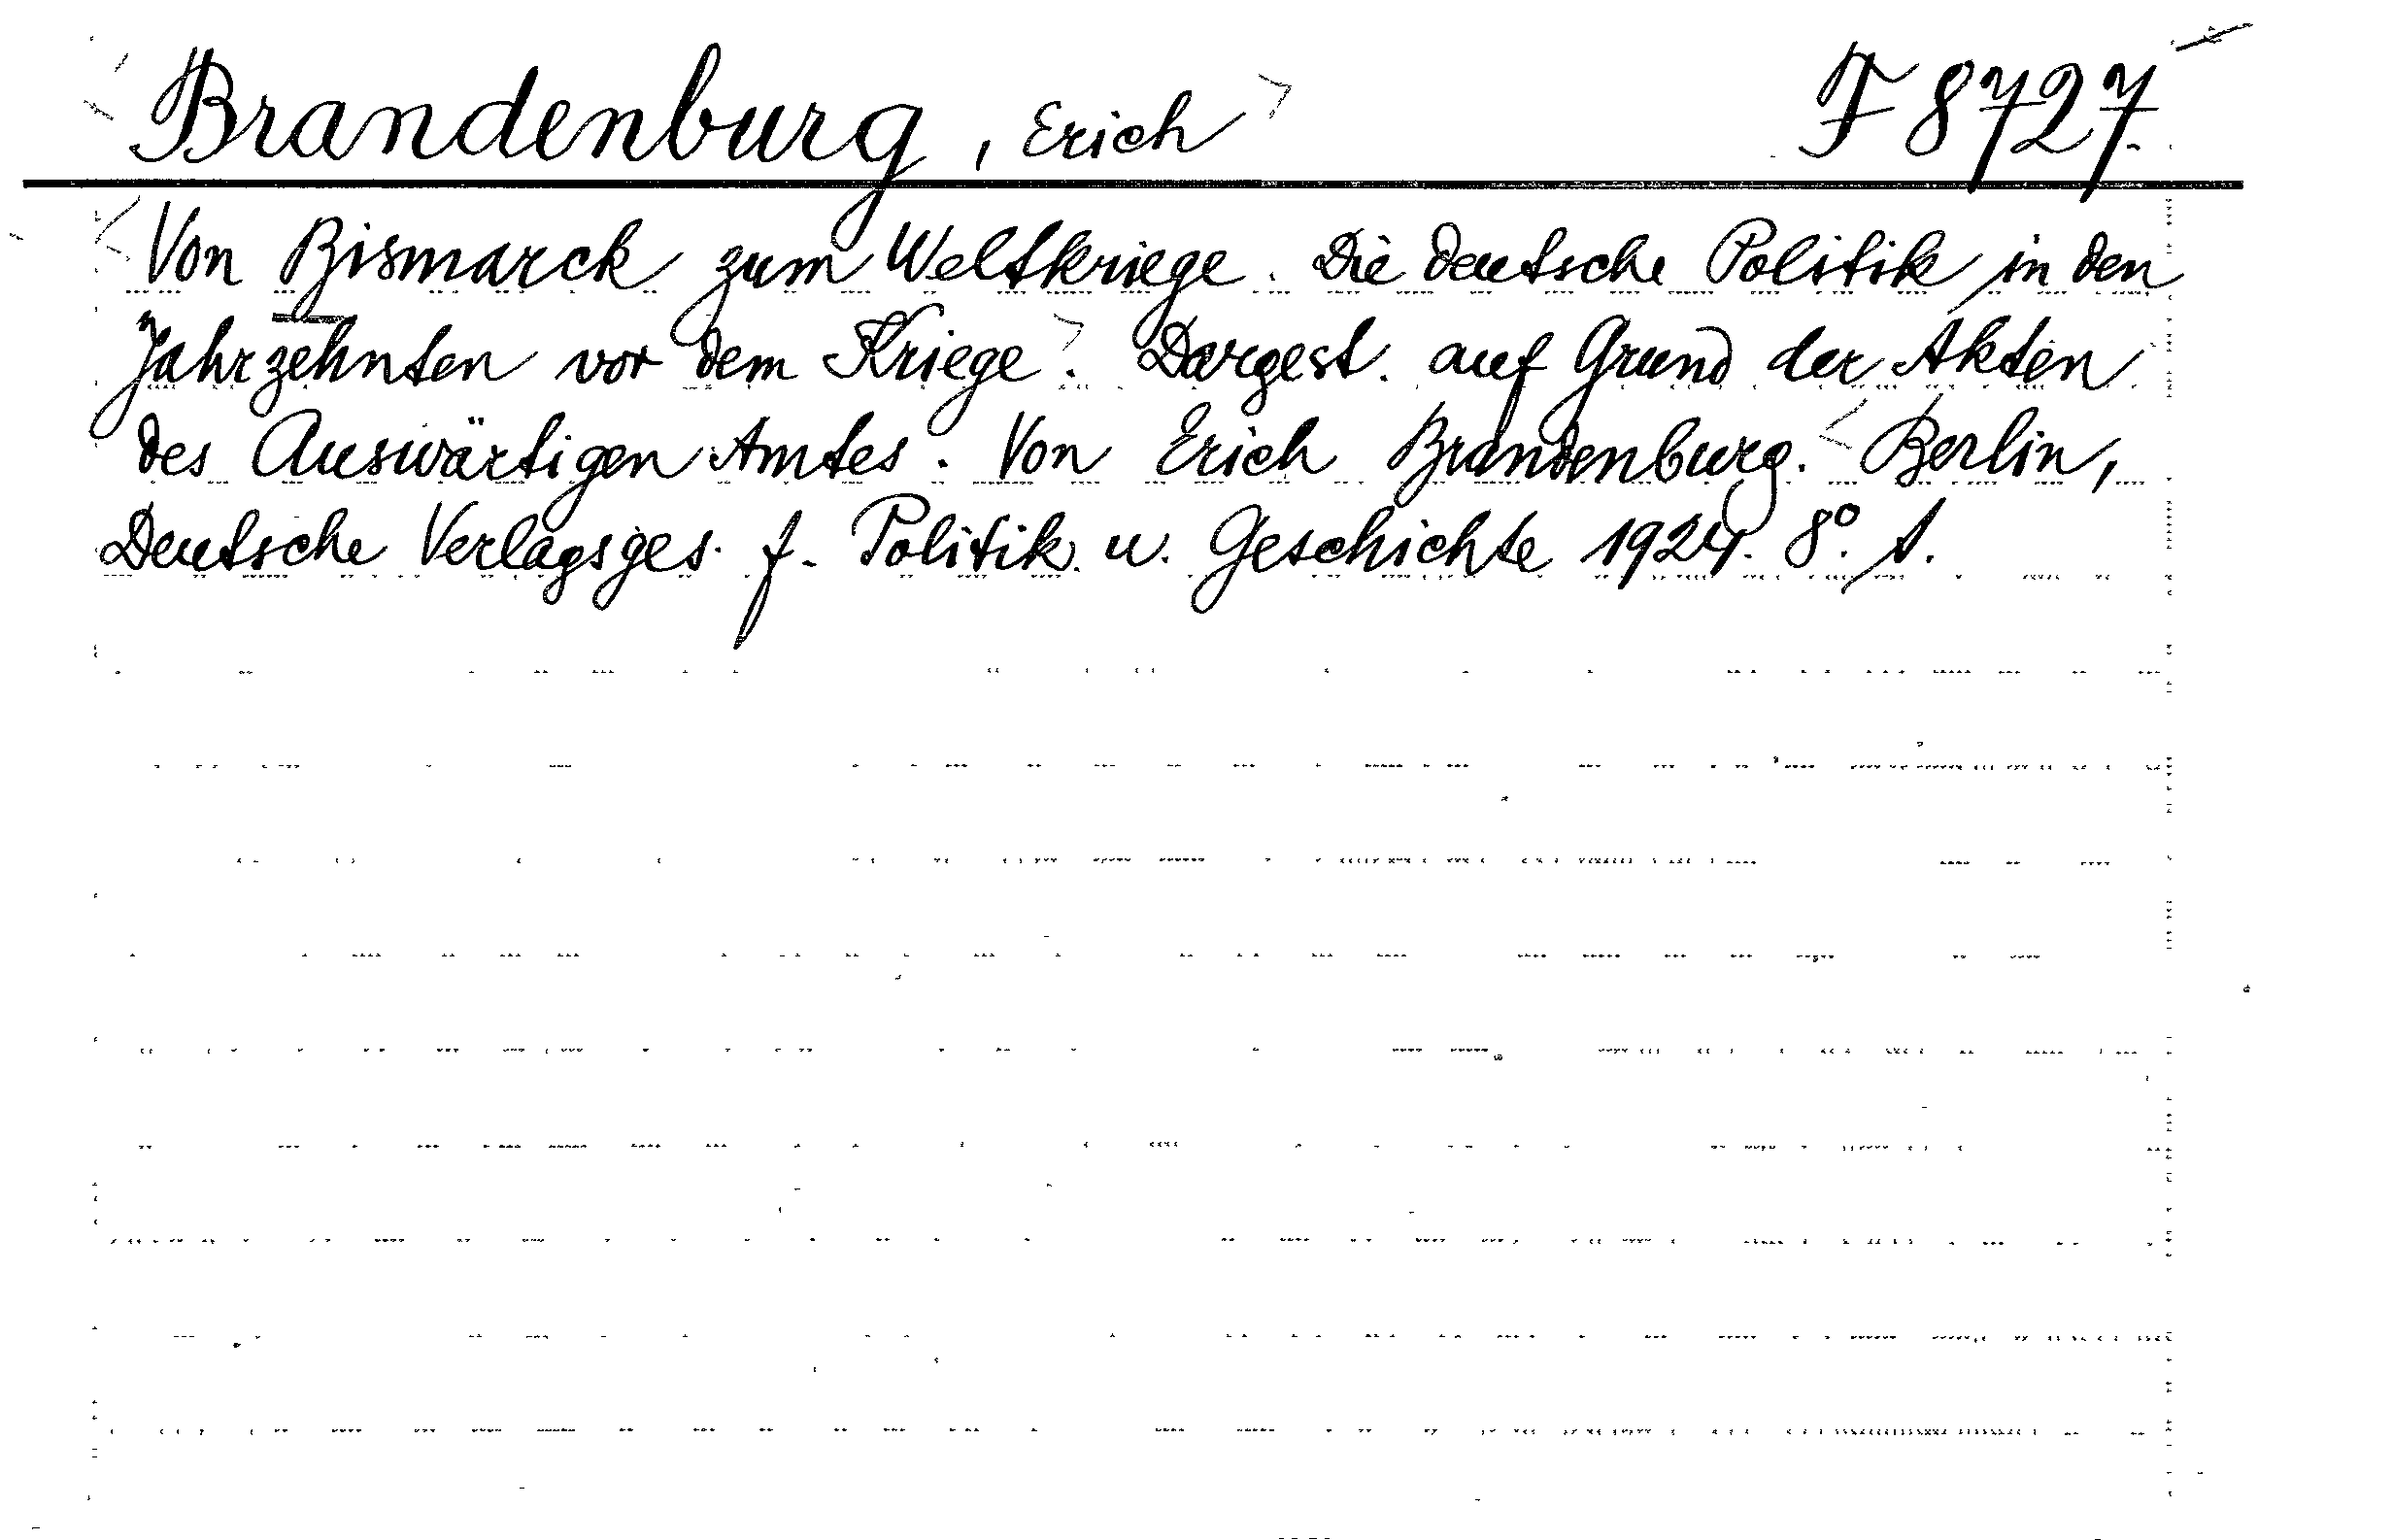 Brandenburg, Erich F 8727.
Von Bismarck zum Weltkriege. Die deutsche Politik in den
Jahrzehnten vor dem Kriege. Dargest. auf Grund der Akten
des Auswärtigen Amtes. Von Erich Brandenburg. Berlin,
Deutsche Verlagsges. f. Politik u. Geschichte 1924. 8°.